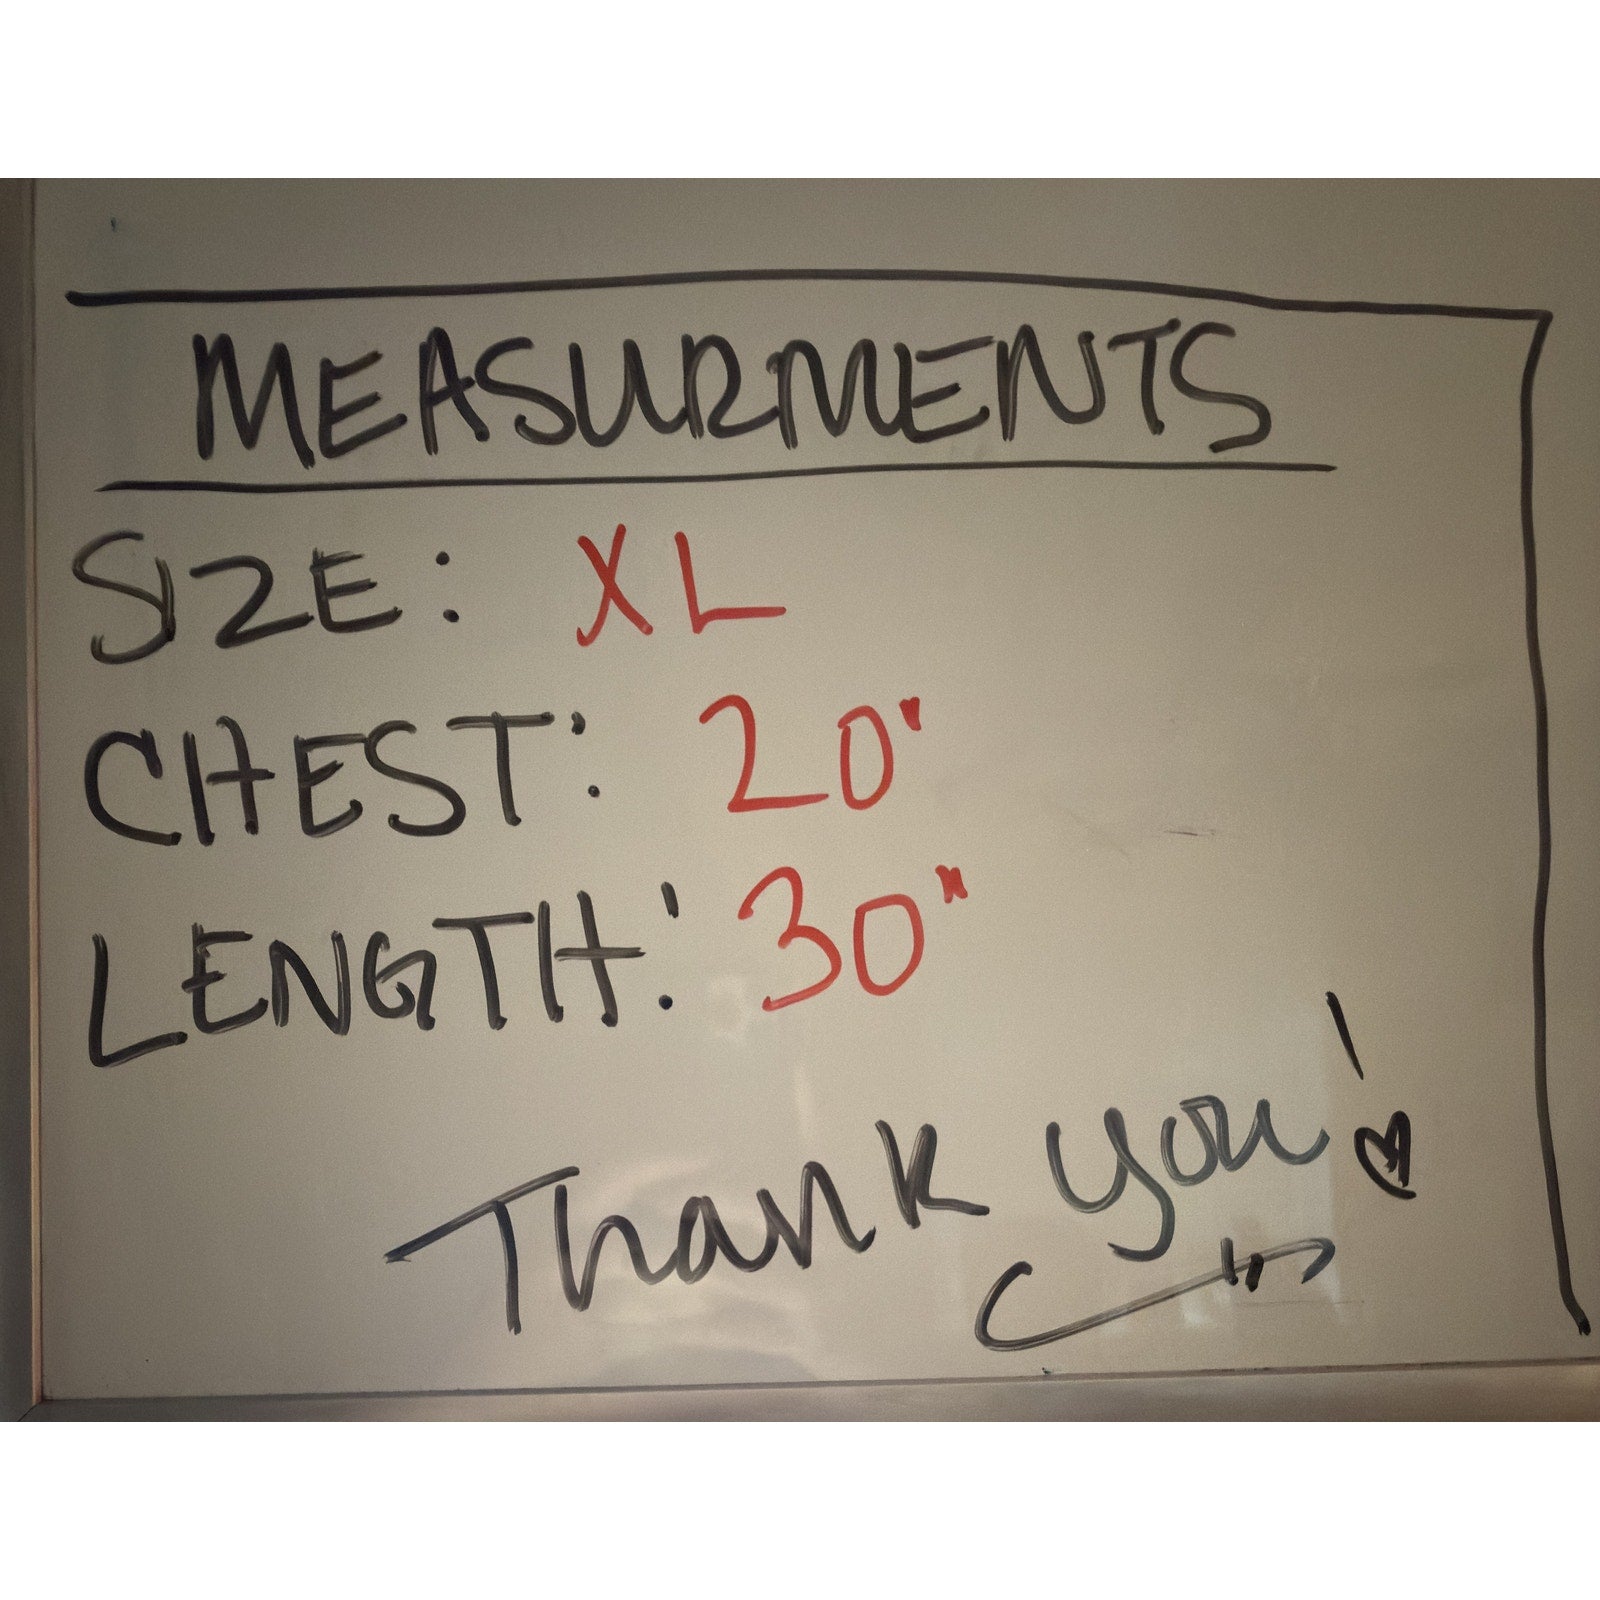 MEASURMENTS
SIZE: XL
CHEST: 20"
LENGTH: 30"
Thank you!